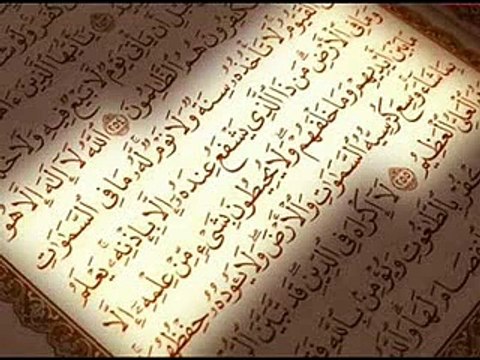 يَٰٓأَيُّهَا ٱلَّذِينَ
أَن يَأْتِىَ يَوْمٌ لَّا بَيْعٌ فِيهِ وَلَا
وَٱلْكَٰفِرُونَ هُمُ ٱلظَّٰلِمُونَ ٢٥٤ ٱللَّهُ لَآ إِلَٰهَ إِلَّا هُوَ
ٱلْقَيُّومُ لَا تَأْخُذُهُۥ سِنَةٌ وَلَا نَوْمٌ لَّهُۥ مَا فِى ٱلسَّمَٰوَٰتِ
وَمَا فِى ٱلْأَرْضِ مَن ذَا ٱلَّذِى يَشْفَعُ عِندَهُۥٓ إِلَّا بِإِذْنِهِۦ يَعْلَمُ
مَا بَيْنَ أَيْدِيهِمْ وَمَا خَلْفَهُمْ وَلَا يُحِيطُونَ بِشَىْءٍ مِّنْ عِلْمِهِۦٓ إِلَّا
بِمَا شَآءَ وَسِعَ كُرْسِيُّهُ ٱلسَّمَٰوَٰتِ وَٱلْأَرْضَ وَلَا يَـُٔودُهُۥ حِفْظُهُمَا
ٱلْعَلِىُّ ٱلْعَظِيمُ ٢٥٥ لَآ إِكْرَاهَ فِى ٱلدِّينِ قَد تَّبَيَّنَ
يَكْفُرْ بِٱلطَّٰغُوتِ وَيُؤْمِنۢ بِٱللَّهِ فَقَدِ
ٱنفِصَامَ لَهَا وَٱللَّهُ